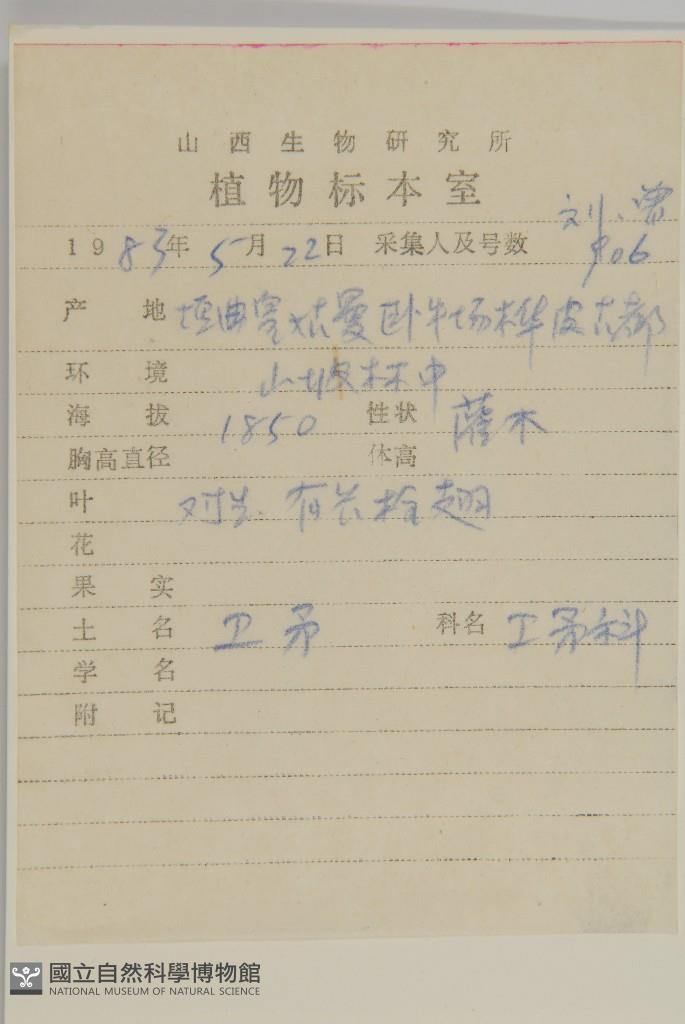 山西生物研究所
植物标本室
1983年5月22日 采集人及号数 刘、曾 906
产地 垣曲 曼卧牛场桦皮
环境 山坡林中
海拔 1850 性状 灌木
胸高直径 体高
叶 对生 有长栓翅
花
果实
土名 卫矛 科名 卫矛科
学名
附记
國立自然科學博物館
NATIONAL MUSEUM OF NATURAL SCIENCE